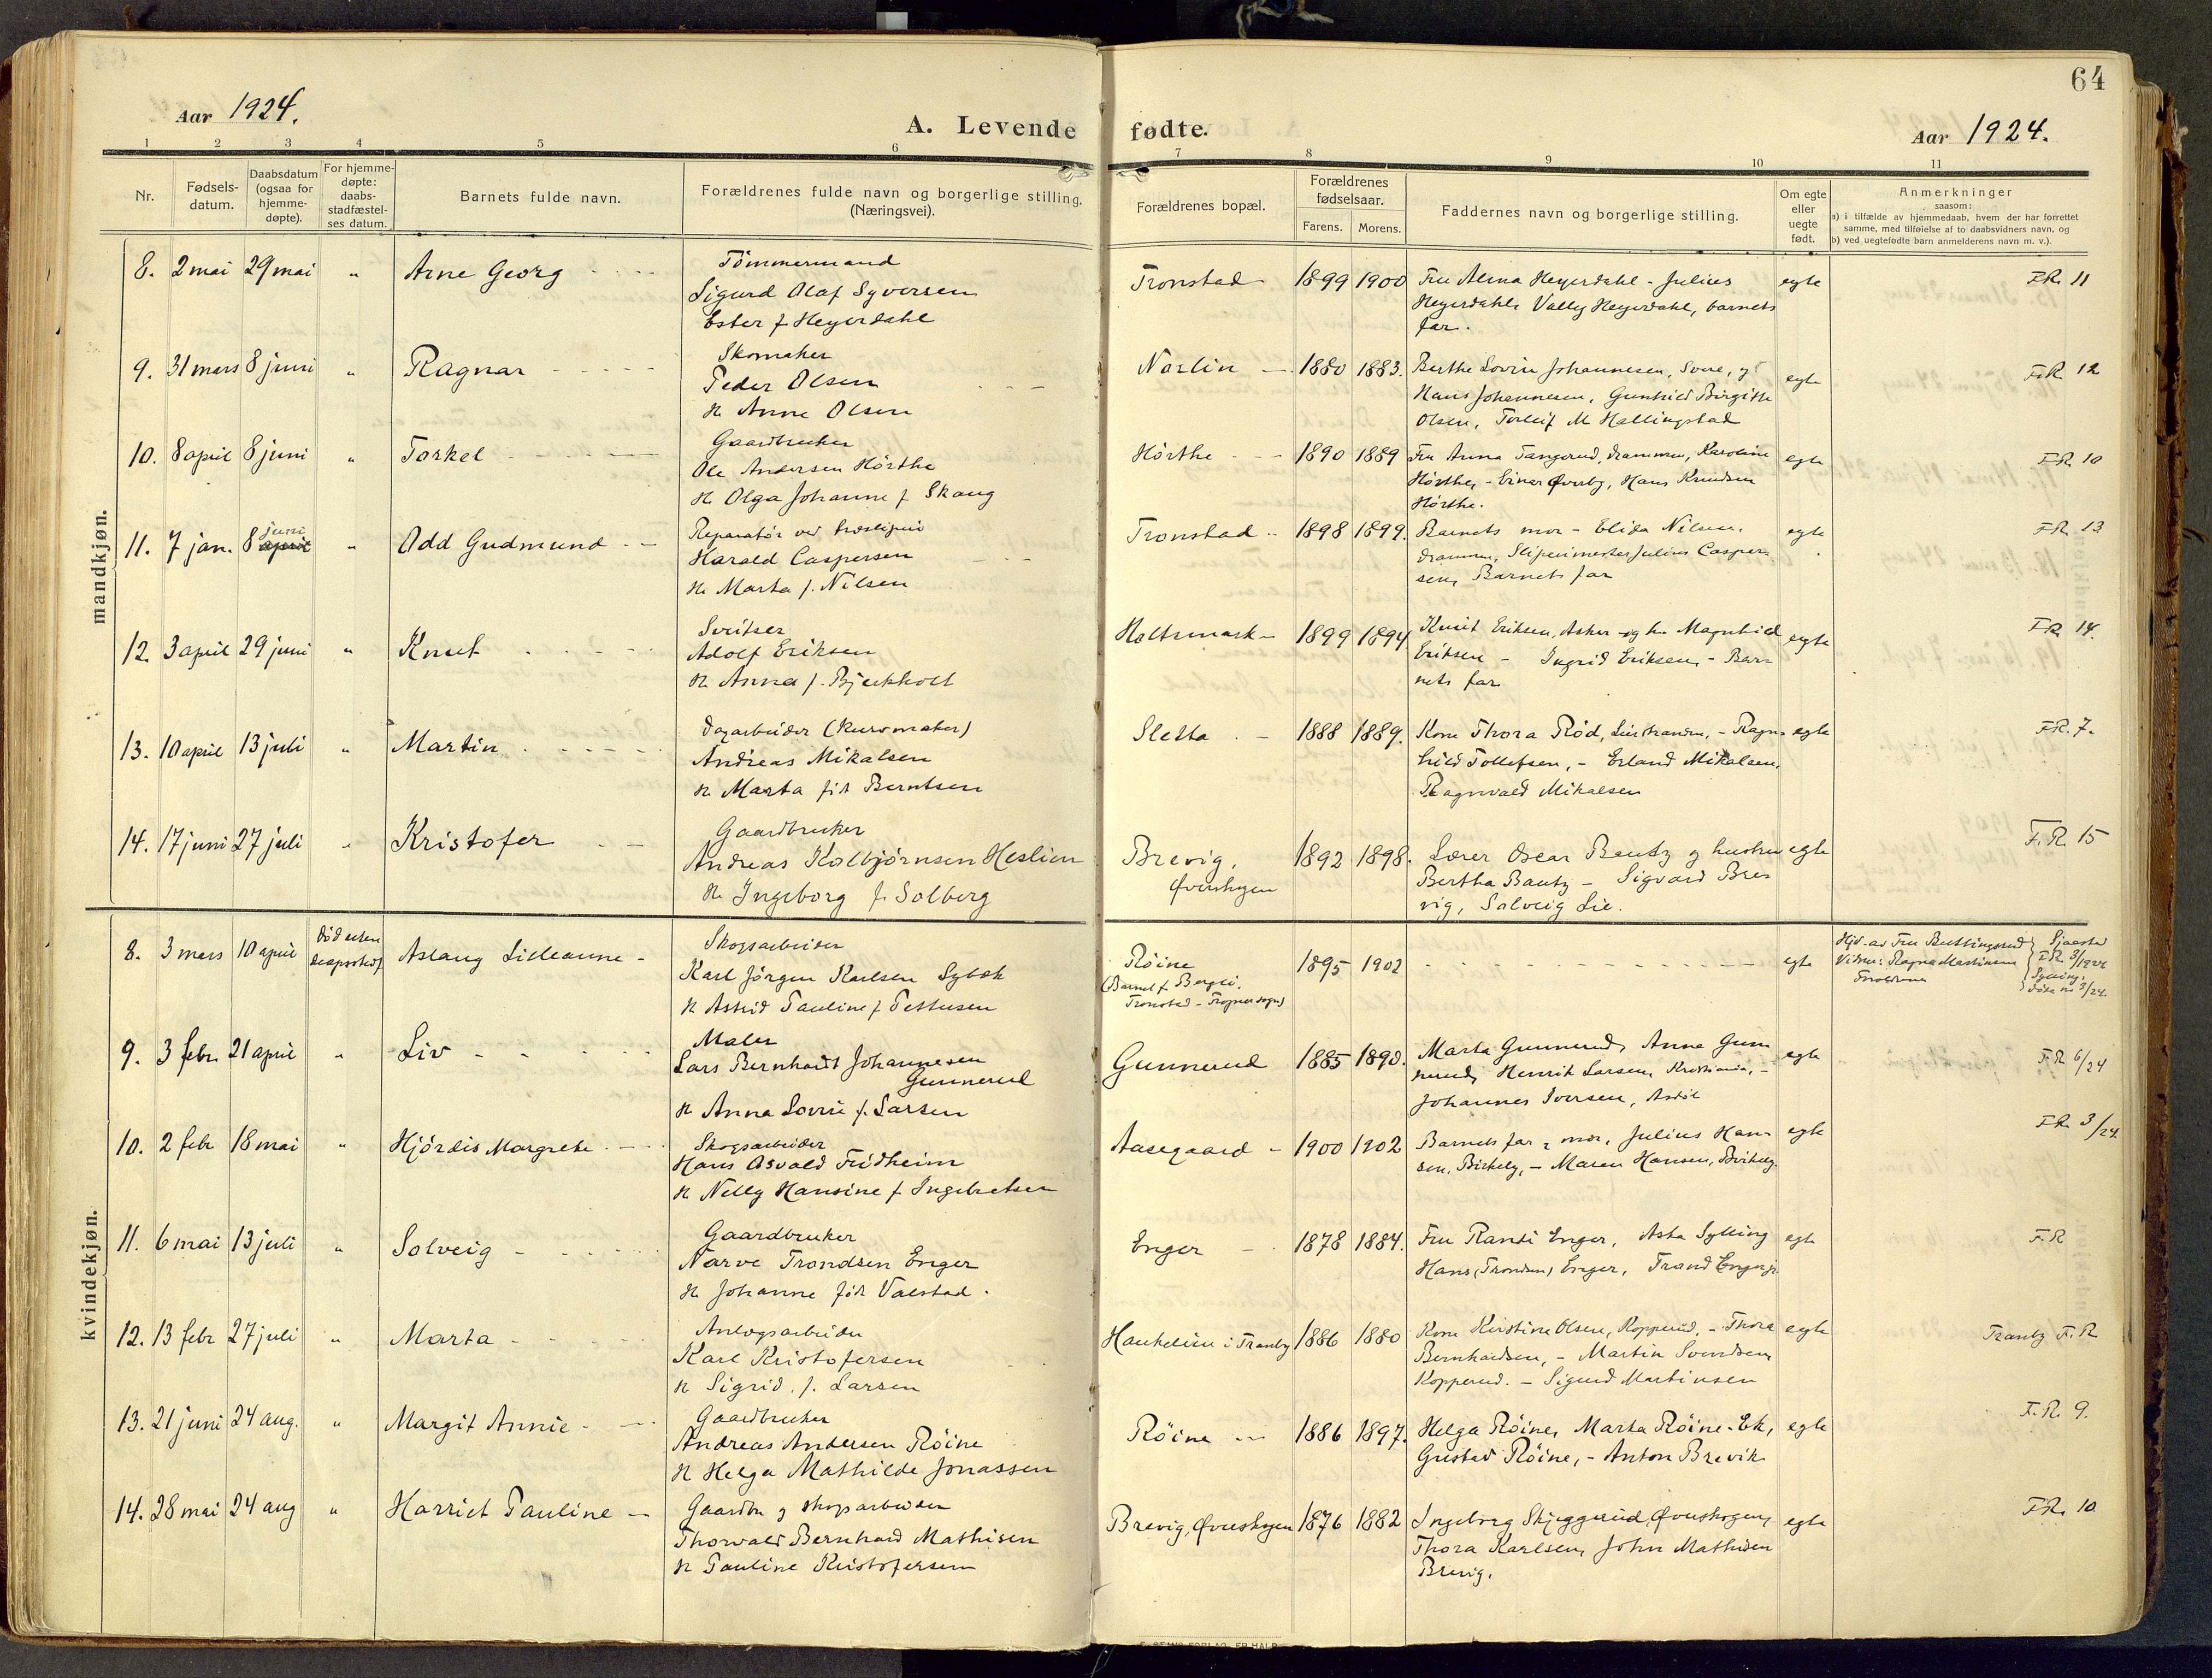 64
Aar 1924.
A. Levende fødte.
Aar 1924.
1 2 3 4 5 6 7 8 9 10 11
Nr.
Fødsels-
datum.
Daabsdatum
(ogsaa for
hjemme-
døpte).
For hjemme-
døpte:
daabs-
stadfæstel-
ses datum.
Barnets fulde navn.
Forældrenes fulde navn og borgerlige stilling.
(Næringsvei).
Forældrenes bopæl.
Forældrenes
fødselsaar.
Farens. Morens.
Faddernes navn og borgerlige stilling.
Om egte
eller
uegte
født.
Anmerkninger
saasom:
a) i tilfælde av hjemmedaab, hvem der har forrettet
samme, med tilføielse af to daabsvidners navn, og
b) ved uegtefødte barn anmelderens navn m. v.).
mandkjøn.
8. 2 mai 29 mai " Arne Georg
Tömmermand
Sigurd Olaf Syversen
Ester f Heyerdahl
Tronstad 1899 1900
Fru Alma Heyerdahl - Julius
Heyerdahl, Vally Heyerdahl, barnets
far.
egte FR. 11
9. 31 mars 8 juni " Ragnar
Skomaker
Peder Olsen
H. Anne Olsen
Narlin 1880 1883.
Berthe Lovise Johannesen, og
Hans Johannesen, Gunhild Birgitte
Olsen, Torleif M Hallingstad
egte F.R. 12
10. 8 april 8 juni " Torkel
Gaardbruker
Ole Andersen Hörthe
H. Olga Johanne f. Skaug
Hörthe 1890 1889
Fru Anna Tangerud, Drammen, Karoline
Hörthe, - Einar Øverby, Hans Knudsen
Hörthe.
egte FR 10
11. 7 jan. 8 juni april " Odd Gudmund
Reparatör ved træsliperi
Harald Caspersen
H. Marta f. Nilsen
Tronstad 1898 1899.
Barnets mor - Elida Nilsen,
Drammen, Slipermester Julius Casper-
sen, Barnets far
egte FR. 13
12. 3 april 29 juni " Knut
Sveitser
Adolf Eriksen
H. Anna f. Bjerkholt
Holtsmark 1899 1894
Knut Eriksen, Asker og hu Magnhild
Eriksen - Ingrid Eriksen, - Bar-
nets far
egte FR 14.
13. 10 april 13 juli " Martin
Dagarbeider (kurvmaker)
Andreas Mikalsen
H. Marta föd Berntsen
Sletta 1888 1889.
Kone Thora Röd, Lierstranden, - Ragn-
hild Tollefsen, - Erland Mikalsen,
Ragnvald Mikalsen
egte FR. 7.
14. 17 juni 27 juli " Kristofer
Gaardbruker
Andreas Kolbjörnsen Heslien
H. Ingeborg f. Solberg
Brevig,
Øverskogen
1892 1898.
Lærer Oscar Bautz og hustru
Bertha Bautz - Sigvard Bre-
vig, Solveig Lie.
egte F.R. 15
kvindekjøn.
8. 3 mars 10 april Död uten
Aslaug Lilleanne
Skogsarbeider
Karl Jörgen Karlsen Sybæk
H Astrid Pauline f. Pettersen
Röine
(Barnet f. Berglie.
Tronstad - Frogner sogn)
1895 1902 egte
Hjd. av Fru Buttingsrud
Vidner: Ragna Martinsen
Sjaastad
FR. 3/1924
Sylling.
Döde nr 3/24.
9. 3 febr. 21 april " Liv
Maler
Lars Bernhardt Johannesen
Gunnerud
H Anna Lovise f. Larsen
Gunnerud 1885 1890.
Marta Gunnerud, Anna Gun-
nerud, Henrik Larsen, Kristiania, -
Johannes Iversen, Asdöl
egte F.R 6/24
10. 2 febr 18 mai " Hjördis Margrete
Skogsarbeider
Hans Osvald Fridheim
H Nelly Hansine f. Ingebretsen
Aasegaard 1900 1902
Barnets far & mor, Julius Han-
sen, Birkely, - Maren Hansen, Birkely.
egte FR. 3/24.
11. 6 mai 13 juli " Solveig
Gaardbruker
Narve Trondsen Enger
H. Johanne föd Valstad.
Enger 1878 1884.
Fru Randi Enger, Asta Sylling
Hans (Trondsen) Enger, Trond Enger jr.
egte F.R
12. 13 febr 27 juli " Marta
Anlægsarbeider
Karl Kristofersen
H Sigrid. f. Larsen
Haukelien i Tranby 1886 1880
Kone Kirstine Olsen, Kopperud, - Thora
Bernhardsen, - Martin Svendsen,
Kopperud. - Sigurd Martinsen
egte Tranby F.R
13. 21 juni 24 aug. " Margit Annie
Gaardbruker
Andreas Andersen Röine
H Helga Mathilde Jonassen
Röine 1886 1897.
Helga Röine, Marta Röine-Ek,
Gustav Röine, - Anton Brevik
egte F.R. 9.
14. 28 mai 24 aug " Harriet Pauline
Gaardbr og skogsarbeider
Thorvald Bernhard Mathisen
H Pauline Kristofersen
Brevig, Øverskogen 1876 1882
Ingeborg Skjeggerud, Øverskogen,
Thora Karlsen, John Mathisen
Brevig.
egte FR. 10